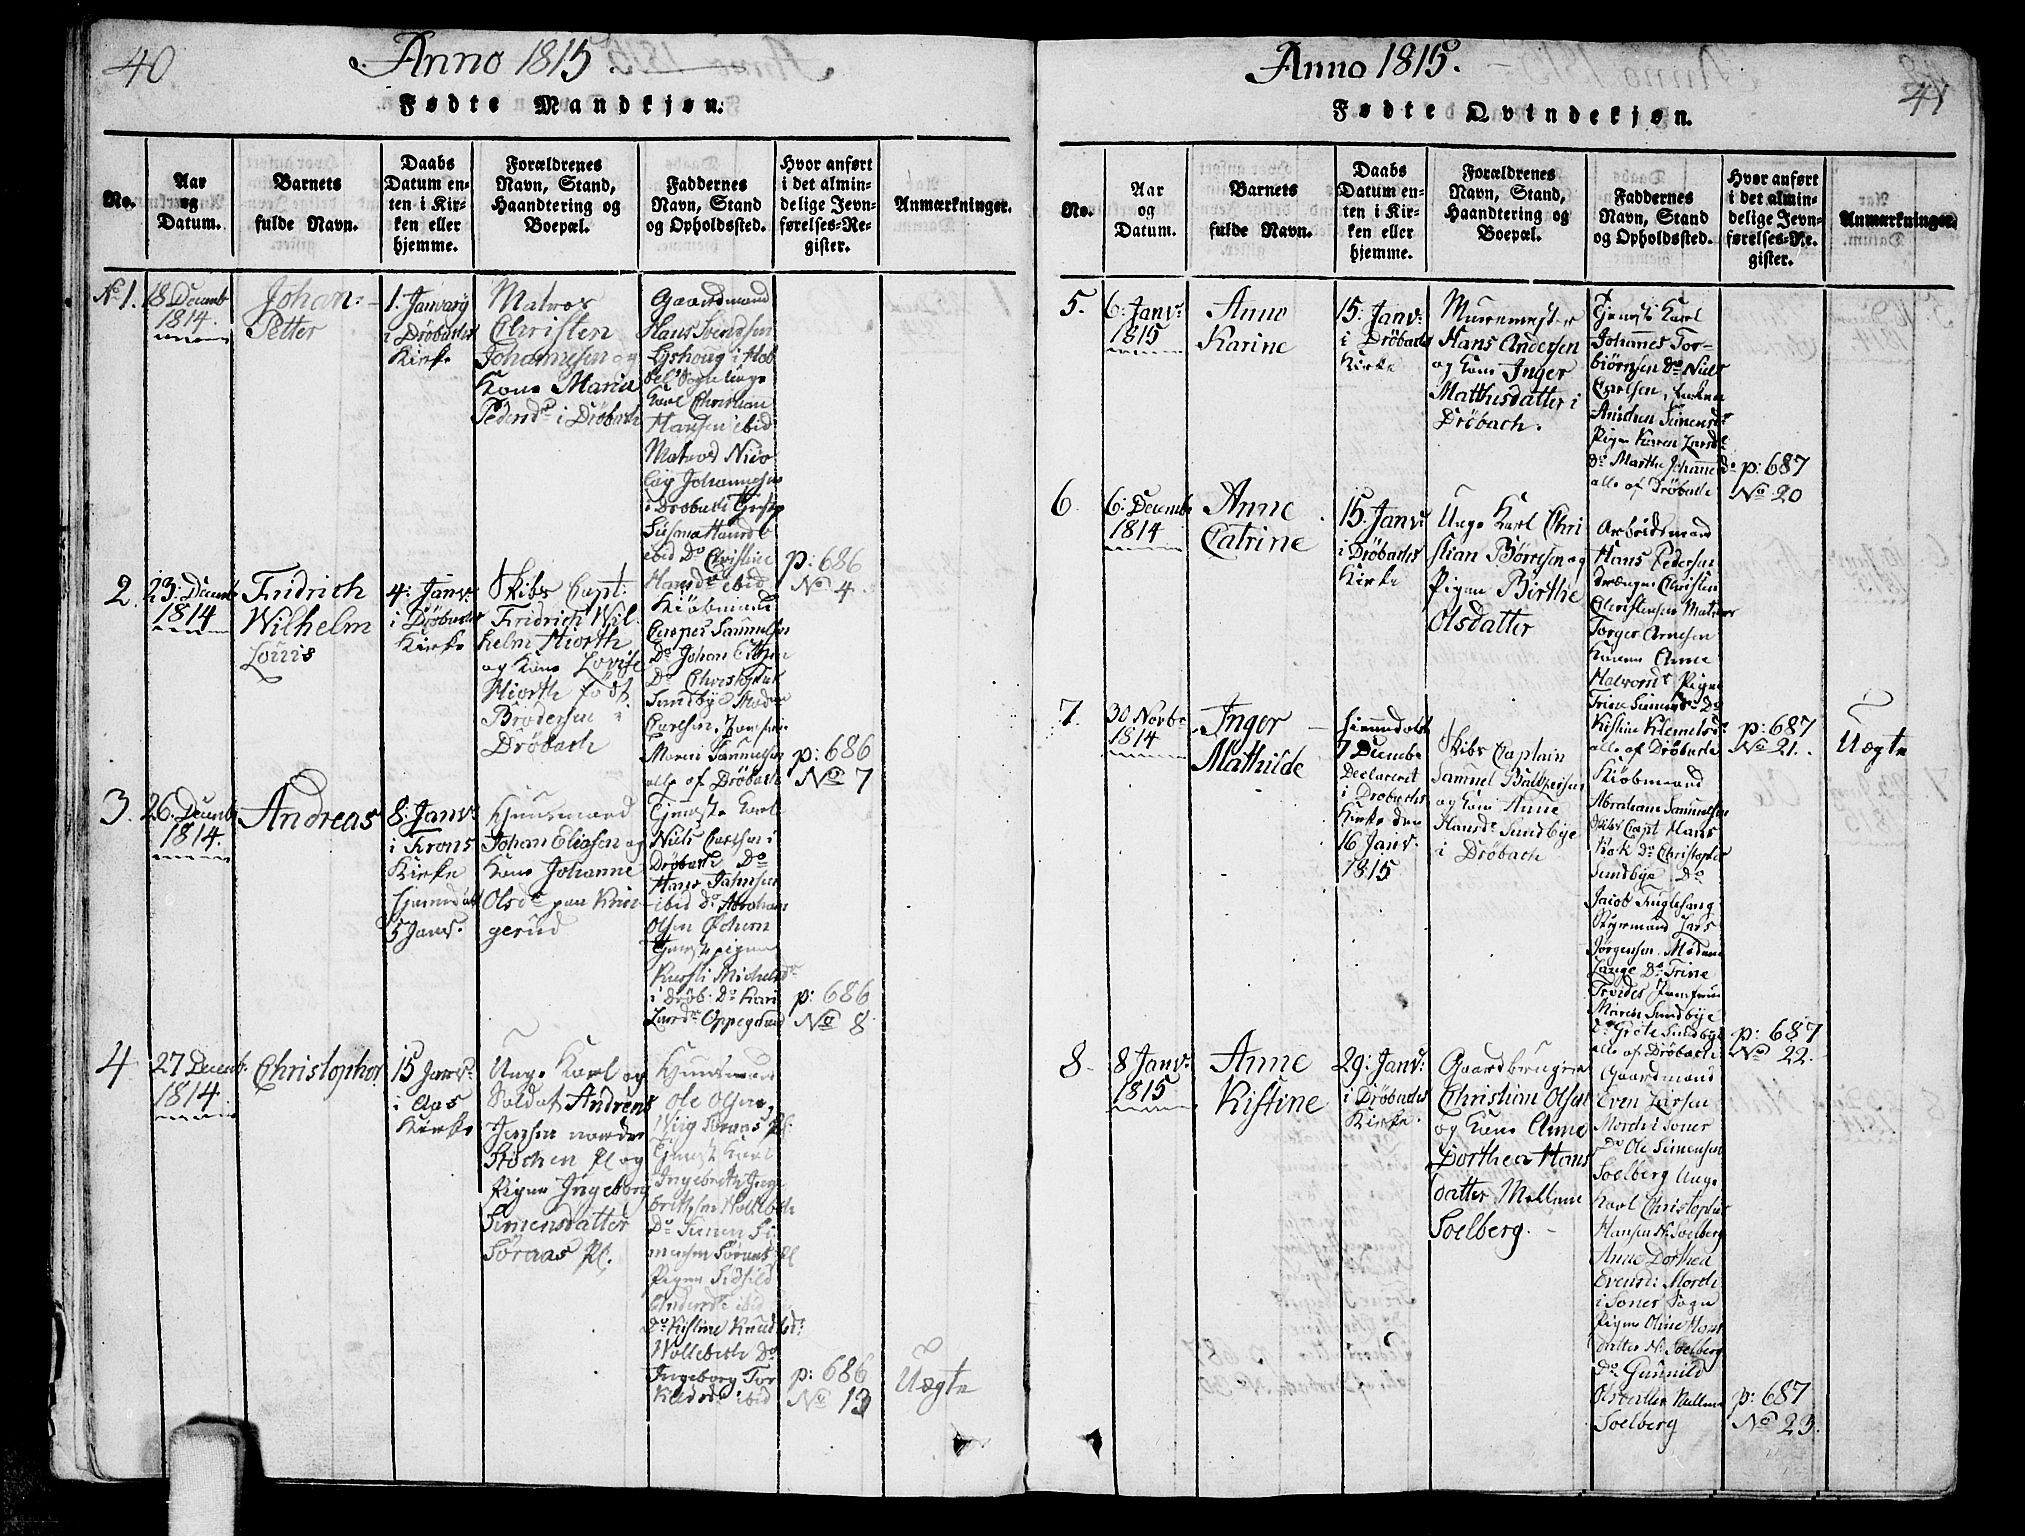 40
Anno 1815.
Fødte Mandkjøn.
No.
Aar
og
Datum.
Barnets
fulde Navn.
Daabs
Datum en-
ten i Kir-
ken eller
hjemme.
Forældrenes
Navn, Stand,
Haandtering og
Boepæl.
Faddernes
Navn, Stand
og Opholdssted.
Hvor anført
i det almin-
delige Jevn-
førelses-Re-
gister.
Anmærkninger.
No 1.
18 Decemb
1814.
Johan
Petter
1. Janvary
i Drøbachs
Kirke
Matros
Christen
Johannesen og
Kone Maria
Pedersd. i Drøbach
Gaardmand
Hans Svendsen
Karl Christian
Hansen ibid
Matros Nico
lay Johannesen
i Drøbach
ibid Do Christine
Hansd. ibid
p: 686
No 4.
2.
23. Decemb
1814
Fridrich
Wilhelm
Louis
4: Janv:
i Drøbachs
Kirke
Skibs Capt:
Fridrich Wil
helm Hiorth
og Kone Lovise
Hiorth født
Brodersen i
Drøbach
Kiøbmand
Casper Samuelsen
Do Johan
Do Christopher
Sundbye Madm
Carlsen,
Maren Samuelsen
alle af Drøbach
p: 686
No 7
3.
26. Decemb
1814.
Andreas
8. Janv:
i Krons
Kirke
Hjemdøbt
5 Janv:
Huusmand
Johan Eliasen og
Kone Johanne
Olsd.
gerud
Tjeneste Karl
Niels Carlsen i
Drøbach Do
ibid Do Abraham
Olsen
Tjenestepigen
i Drøb: Do Kari
Larsd. Oppegaard
p: 686
No 8
4
27 Decemb:
1814
Christopher
15 Janv:
i Aas
Kirke
Unge Karl og
Soldat Andreas
Jensen nordre
Pl og
Pigen Ingeborg
Simensdatter
Søraas Pl.
Huusmand
Ole Olsen,
Søraas Pl.
Tjeneste Karl
Ingebreth Inge
brethsen
Do Simen Si
mensen Søraas Pl
Pigen Sidsild
Andersd. ibid
Do Kistine Knudsd:
Wollebech Do
Ingeborg Tor
kildsd. ibid
p: 686
No 13
Uægte
Anno 1815.
41
Fødte Qvindekjøn.
No.
Aar
og
Datum.
Barnets
fulde Navn.
Daabs
Datum en-
ten i Kir-
ken eller
hjemme.
Forældrenes
Navn, Stand,
Haandtering og
Boepæl.
Faddernes
Navn, Stand
og Opholdssted.
Hvor anført
i det almin-
delige Jevn-
førelses-Re-
gister.
Anmærkninger.
5.
6: Janv:
1815
Anne
Karine
15. Janv:
i Drøbachs
Kirke
Muremester
Hans Andersen
og Kone Inger
Mathisdatter i
Drøbach.
Tjeneste Karl
Johannes Tor-
biørnsen Do Niels
Carlsen, Enken
Anichen Simensd.
Pigen Karen Larsd.
Do Marthe Johannesd.
alle af Drøbach
p: 687
No 20
6
6: Decemb
1814
Anne
Catrine
15. Janv:
i Drøbachs
Kirke
Unge Karl Chri
stian Børresen og
Pigen Birthe
Olsdatter
Arbeidsmand
Hans Pedersen
drængen Christen
Christensen Matros
Torger Arnesen
Konen Anne
Halvorsd. Pigen
Trine Simensd. Do
Kistine Klemetsd.
alle af Drøbach
p: 687
No 21.
Uægte
7.
30 Novbr
1814
Inger
Mathilde
hjemmedøbt
7 Decembr
Declareret
i Drøbachs
Kirke den
16 Janv.
1815
Skibs Captain
Samuel Baltzersen
og Kone Anne
Hansd. Sundbye
i Drøbach
Kiøbmand
Abraham Samuelsen
Skibs Capt Hans
Kok Do Christopher
Sundbye Do
Jacob Fuglesang
Styrmand Lars
Jørgensen. Madame
Lange Do Trine
Tvedes Jomfrue
Maren Sundbye
Do Grete Sundbye
alle af Drøbach
p: 687
No 22.
8
8 Janv:
1815
Anne
Kistine
29: Janv:
i Drøbachs
Kirke.
Gaardbruger
Christian Olsen
og Kone Anne
Dorthea Hans
datter Mellem
Soelberg.
Gaardmand
Even Larsen
Mørch i Soner
Do Ole Simensen
Soelberg Unge
Karl Christopher
Hansen N. Soelberg
Anne Dorthea
Evensd: Mørch
i Soner Sogn
Pigen Oline Hans
datter N. Soelberg
Do Gunnild
Olsdatter Mellem
Soelberg
p: 687
No 23.